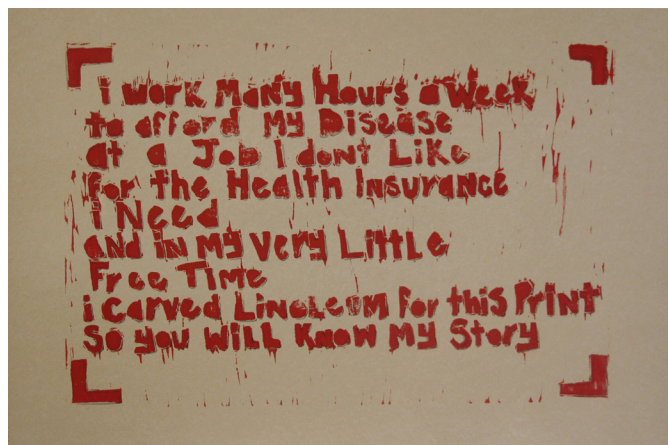 i work Many Hours a Week
to afford My Disease
at a Job I dont Like
for the Health Insurance
i Need
and in My Very Little
Free Time
i carved Linoleom for this Print
So you Will Know My Story